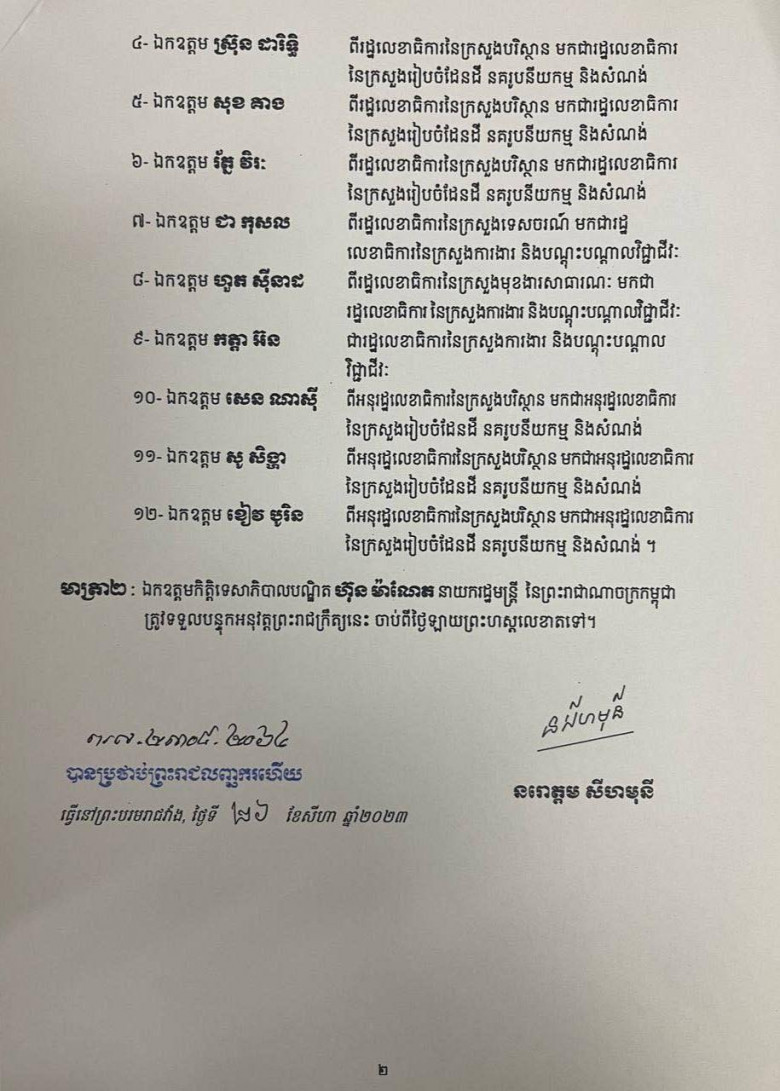 ៤- ឯកឧត្តម ស្រ៊ុន ដារិទ្ធិ ពីរដ្ឋលេខាធិការនៃក្រសួងបរិស្ថាន មកជារដ្ឋលេខាធិការ
នៃក្រសួងរៀបចំដែនដី នគរូបនីយកម្ម និងសំណង់
៥- ឯកឧត្តម សុខ គាង ពីរដ្ឋលេខាធិការនៃក្រសួងបរិស្ថាន មកជារដ្ឋលេខាធិការ
នៃក្រសួងរៀបចំដែនដី នគរូបនីយកម្ម និងសំណង់
៦- ឯកឧត្តម រ័ត្ន វិរៈ ពីរដ្ឋលេខាធិការនៃក្រសួងបរិស្ថាន មកជារដ្ឋលេខាធិការ
នៃក្រសួងរៀបចំដែនដី នគរូបនីយកម្ម និងសំណង់
៧- ឯកឧត្តម ជា កុសល ពីរដ្ឋលេខាធិការនៃក្រសួងទេសចរណ៍ មកជារដ្ឋ
លេខាធិការនៃក្រសួងការងារ និងបណ្តុះបណ្តាលវិជ្ជាជីវៈ
៨- ឯកឧត្តម ហួត ស៊ីនាដ ពីរដ្ឋលេខាធិការនៃក្រសួងមុខងារសាធារណៈ មកជា
រដ្ឋលេខាធិការ នៃក្រសួងការងារ និងបណ្តុះបណ្តាលវិជ្ជាជីវៈ
៩- ឯកឧត្តម កត្តា អ៊ន ជារដ្ឋលេខាធិការនៃក្រសួងការងារ និងបណ្តុះបណ្តាល
វិជ្ជាជីវៈ
១០- ឯកឧត្តម សេន ណាស៊ី ពីអនុរដ្ឋលេខាធិការនៃក្រសួងបរិស្ថាន មកជាអនុរដ្ឋលេខាធិការ
នៃក្រសួងរៀបចំដែនដី នគរូបនីយកម្ម និងសំណង់
១១- ឯកឧត្តម សូ សិង្ហា ពីអនុរដ្ឋលេខាធិការនៃក្រសួងបរិស្ថាន មកជាអនុរដ្ឋលេខាធិការ
នៃក្រសួងរៀបចំដែនដី នគរូបនីយកម្ម និងសំណង់
១២- ឯកឧត្តម ខៀវ បូរិន ពីអនុរដ្ឋលេខាធិការនៃក្រសួងបរិស្ថាន មកជាអនុរដ្ឋលេខាធិការ
នៃក្រសួងរៀបចំដែនដី នគរូបនីយកម្ម និងសំណង់ ។
មាត្រា២ : ឯកឧត្តមកិត្តិទេសាភិបាលបណ្ឌិត ហ៊ុន ម៉ាណែត នាយករដ្ឋមន្ត្រី នៃព្រះរាជាណាចក្រកម្ពុជា
ត្រូវទទួលបន្ទុកអនុវត្តព្រះរាជក្រឹត្យនេះ ចាប់ពីថ្ងៃឡាយព្រះហស្តលេខាតទៅ។
បានប្រថាប់ព្រះរាជលញ្ឆករហើយ
ធ្វើនៅព្រះបរមរាជវាំង, ថ្ងៃទី ២៦ ខែសីហា ឆ្នាំ២០២៣
នរោត្តម សីហមុនី
២